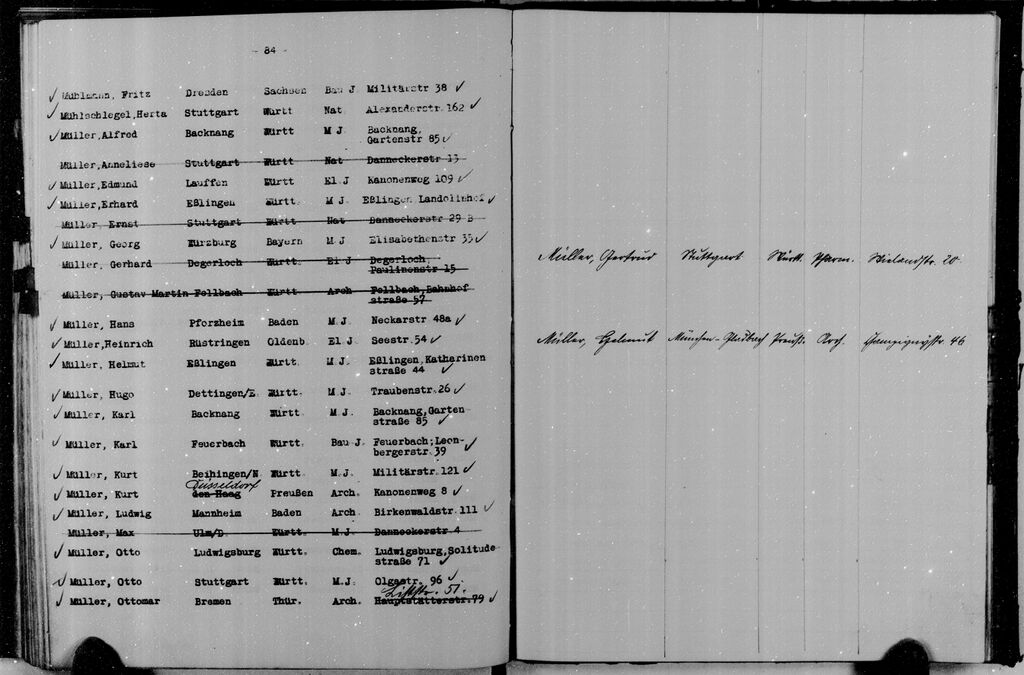 - 84 -
✓ Mühlmann, Fritz Dresden Sachsen Bau J Militärstr 38 ✓
✓ Mühlschlegel, Herta Stuttgart Württ Nat Alexanderstr. 162 ✓
✓ Müller, Alfred Backnang Württ M J Backnang,
Gartenstr 85 ✓
Müller, Anneliese Stuttgart Württ Nat Danneckerstr 13
✓ Müller, Edmund Lauffen Württ El J Kanonenweg 109 ✓
✓ Müller, Erhard Eßlingen Württ. M J. Eßlingen Landolinhof ✓
Müller, Ernst Stuttgart Württ Nat Danneckerstr 29 B
✓ Müller, Georg Würzburg Bayern M J Elisabethenstr 35 ✓
Müller, Gerhard Degerloch Württ. El J Degerloch,
Paulinenstr 15
Müller, Gustav Martin Fellbach Württ Arch Fellbach, Bahnhof
straße 57
✓ Müller, Hans Pforzheim Baden M J. Neckarstr 48a ✓
✓ Müller, Heinrich Rüstringen Oldenb. El J. Seestr. 54 ✓
✓ Müller, Helmut Eßlingen Württ. M.J. Eßlingen, Katharinen
straße 44 ✓
✓ Müller, Hugo Dettingen/E. Württ M.J. Traubenstr. 26 ✓
✓ Müller, Karl Backnang Württ M.J. Backnang, Garten
straße 85 ✓
✓ Müller, Karl Feuerbach Württ. Bau J. Feuerbach; Leon-
bergerstr. 39 ✓
✓ Müller, Kurt Beihingen/N Württ. M.J. Militärstr. 121 ✓
Düsseldorf
✓ Müller, Kurt den Haag Preußen Arch. Kanonenweg 8 ✓
✓ Müller, Ludwig Mannheim Baden Arch Birkenwaldstr. 111 ✓
Müller, Max Ulm/D. Württ. M.J. Danneckerstr 4
✓ Müller, Otto Ludwigsburg Württ. Chem. Ludwigsburg, Solitude
straße 71 ✓
✓ Müller, Otto Stuttgart Württ. M.J. Olgastr. 96 ✓
Listr. 51.
✓ Müller, Ottomar Bremen Thür. Arch. Hauptstätterstr. 79 ✓
Müller, Gertrud Stuttgart Württ. Pharm. Wielandstr. 20.
Müller, Helmut München-Gladbach Preuß. Arch. 46